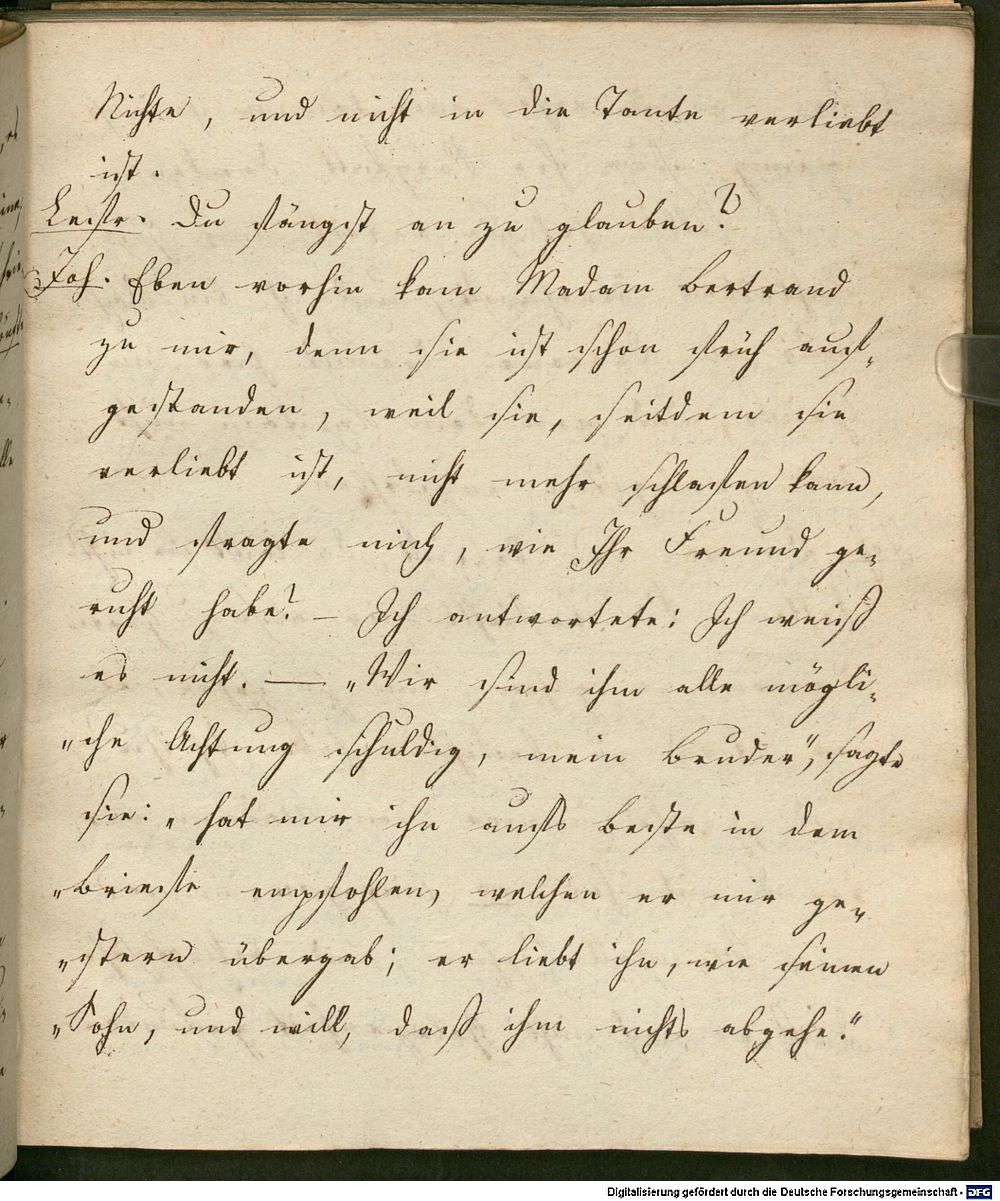 Nichte, und nicht in die Tante verliebt
ist.
Leistr. Du fängst an zu glauben?
Joh. Eben vorhin kam Madam Bertrand
zu mir, denn sie ist schon früh auf-
gestanden, weil sie, seitdem sie
verliebt ist, nicht mehr schlafen kann,
und fragte mich, wie Ihr Freund ge-
ruht habe? – Ich antwortete: Ich weiß
es nicht. — „Wir sind ihm alle mögli-
„che Achtung schuldig, mein Bruder“, sagte
sie: „hat mir ihn aufs beste in dem
„Briefe empfohlen, welchen er mir ge-
„stern übergab; er liebt ihn, wie seinen
„Sohn, und will, daß ihm nichts abgehe.“
Digitalisierung gefördert durch die Deutsche Forschungsgemeinschaft - DFG